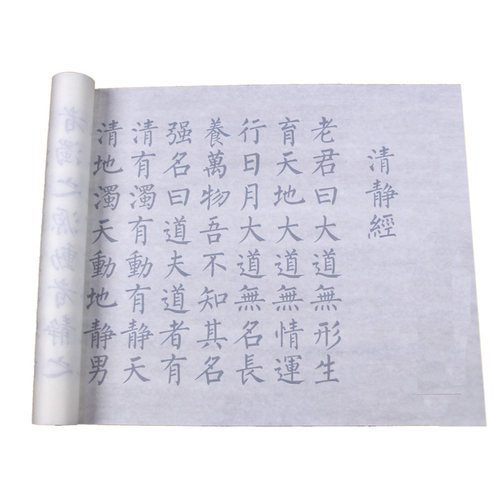 清靜經
老君曰大道無形生
育天地大道無情運
行日月大道無名長
養萬物吾不知其名
强名曰道夫道者有
清有濁有動有静天
清地濁天動地静男
者濁之源動者靜之